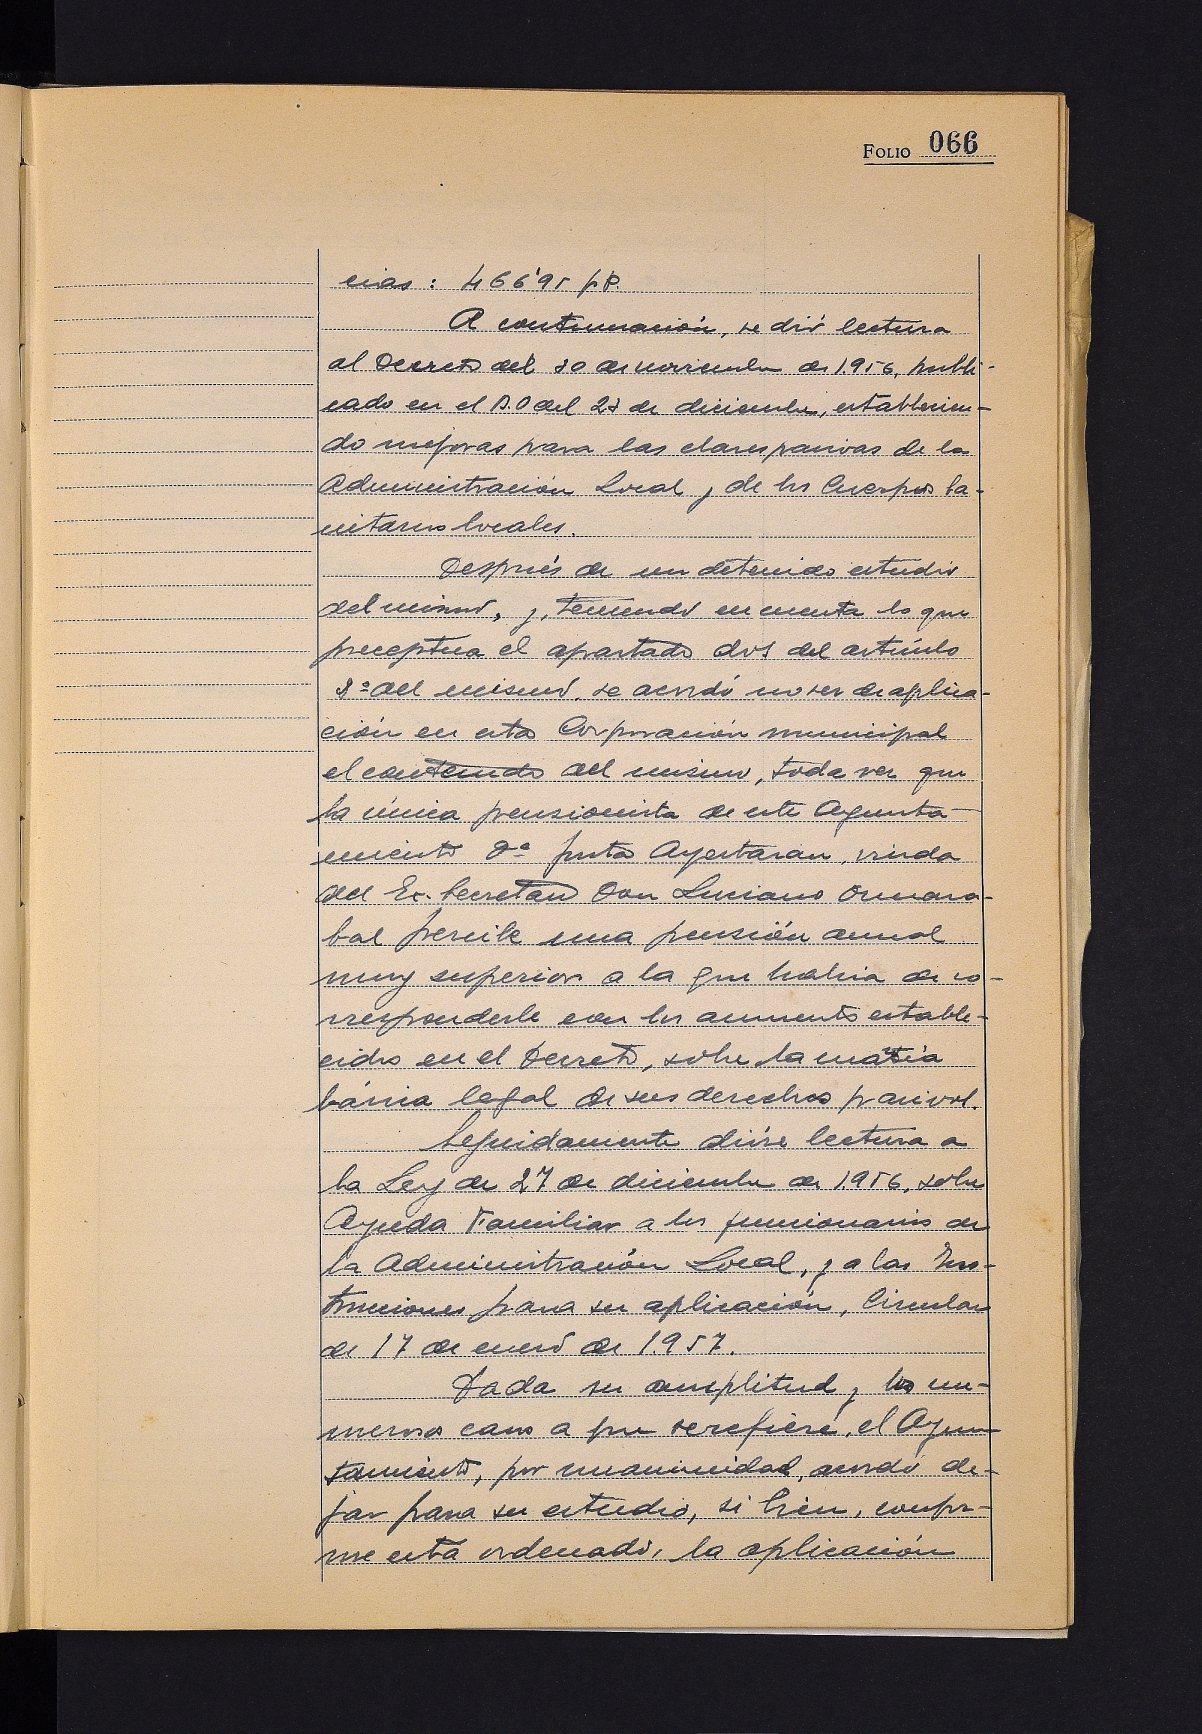 FOLIO 066
cias: 466'95 pts.
A continuación, se dió lectura
al Decreto del 30 de noviembre de 1.956, publi-
cado en el B.O del 23 de diciembre, establecien-
do mejoras para las clases pasivas de la
Administración Local y de los Cuerpos Sa-
nitarios locales.
Después de un detenido estudio
del mismo, y, teniendo en cuenta lo que
preceptua el apartado dos del artículo
del mismo, se acordó no ser de aplica-
ción en esta Corporación municipal
el contenido del mismo, toda vez que
la única pensionista de este Ayunta-
miento Dª Justa Ayestaran, viuda
del Ex-Secretario Don Luciano Ormaza-
bal percibe una pensión anual
muy superior a la que habria de co-
rresponderle con los aumentos estable-
cidos en el Decreto, sobre la
básica legal de sus derechos pasivos.
Seguidamente dióse lectura a
la Ley de 27 de diciembre de 1.956, sobre
Ayuda Familiar a los funcionarios de
la Administración Local, y a las Ins-
trucciones para su aplicación, Circular
de 17 de enero de 1.957.
Dada su amplitud y los nu-
merosos casos a que se refiere, el Ayun-
tamiento, por unanimidad, acordó de-
jar para su estudio, si bien, confor-
me está ordenado, la aplicación